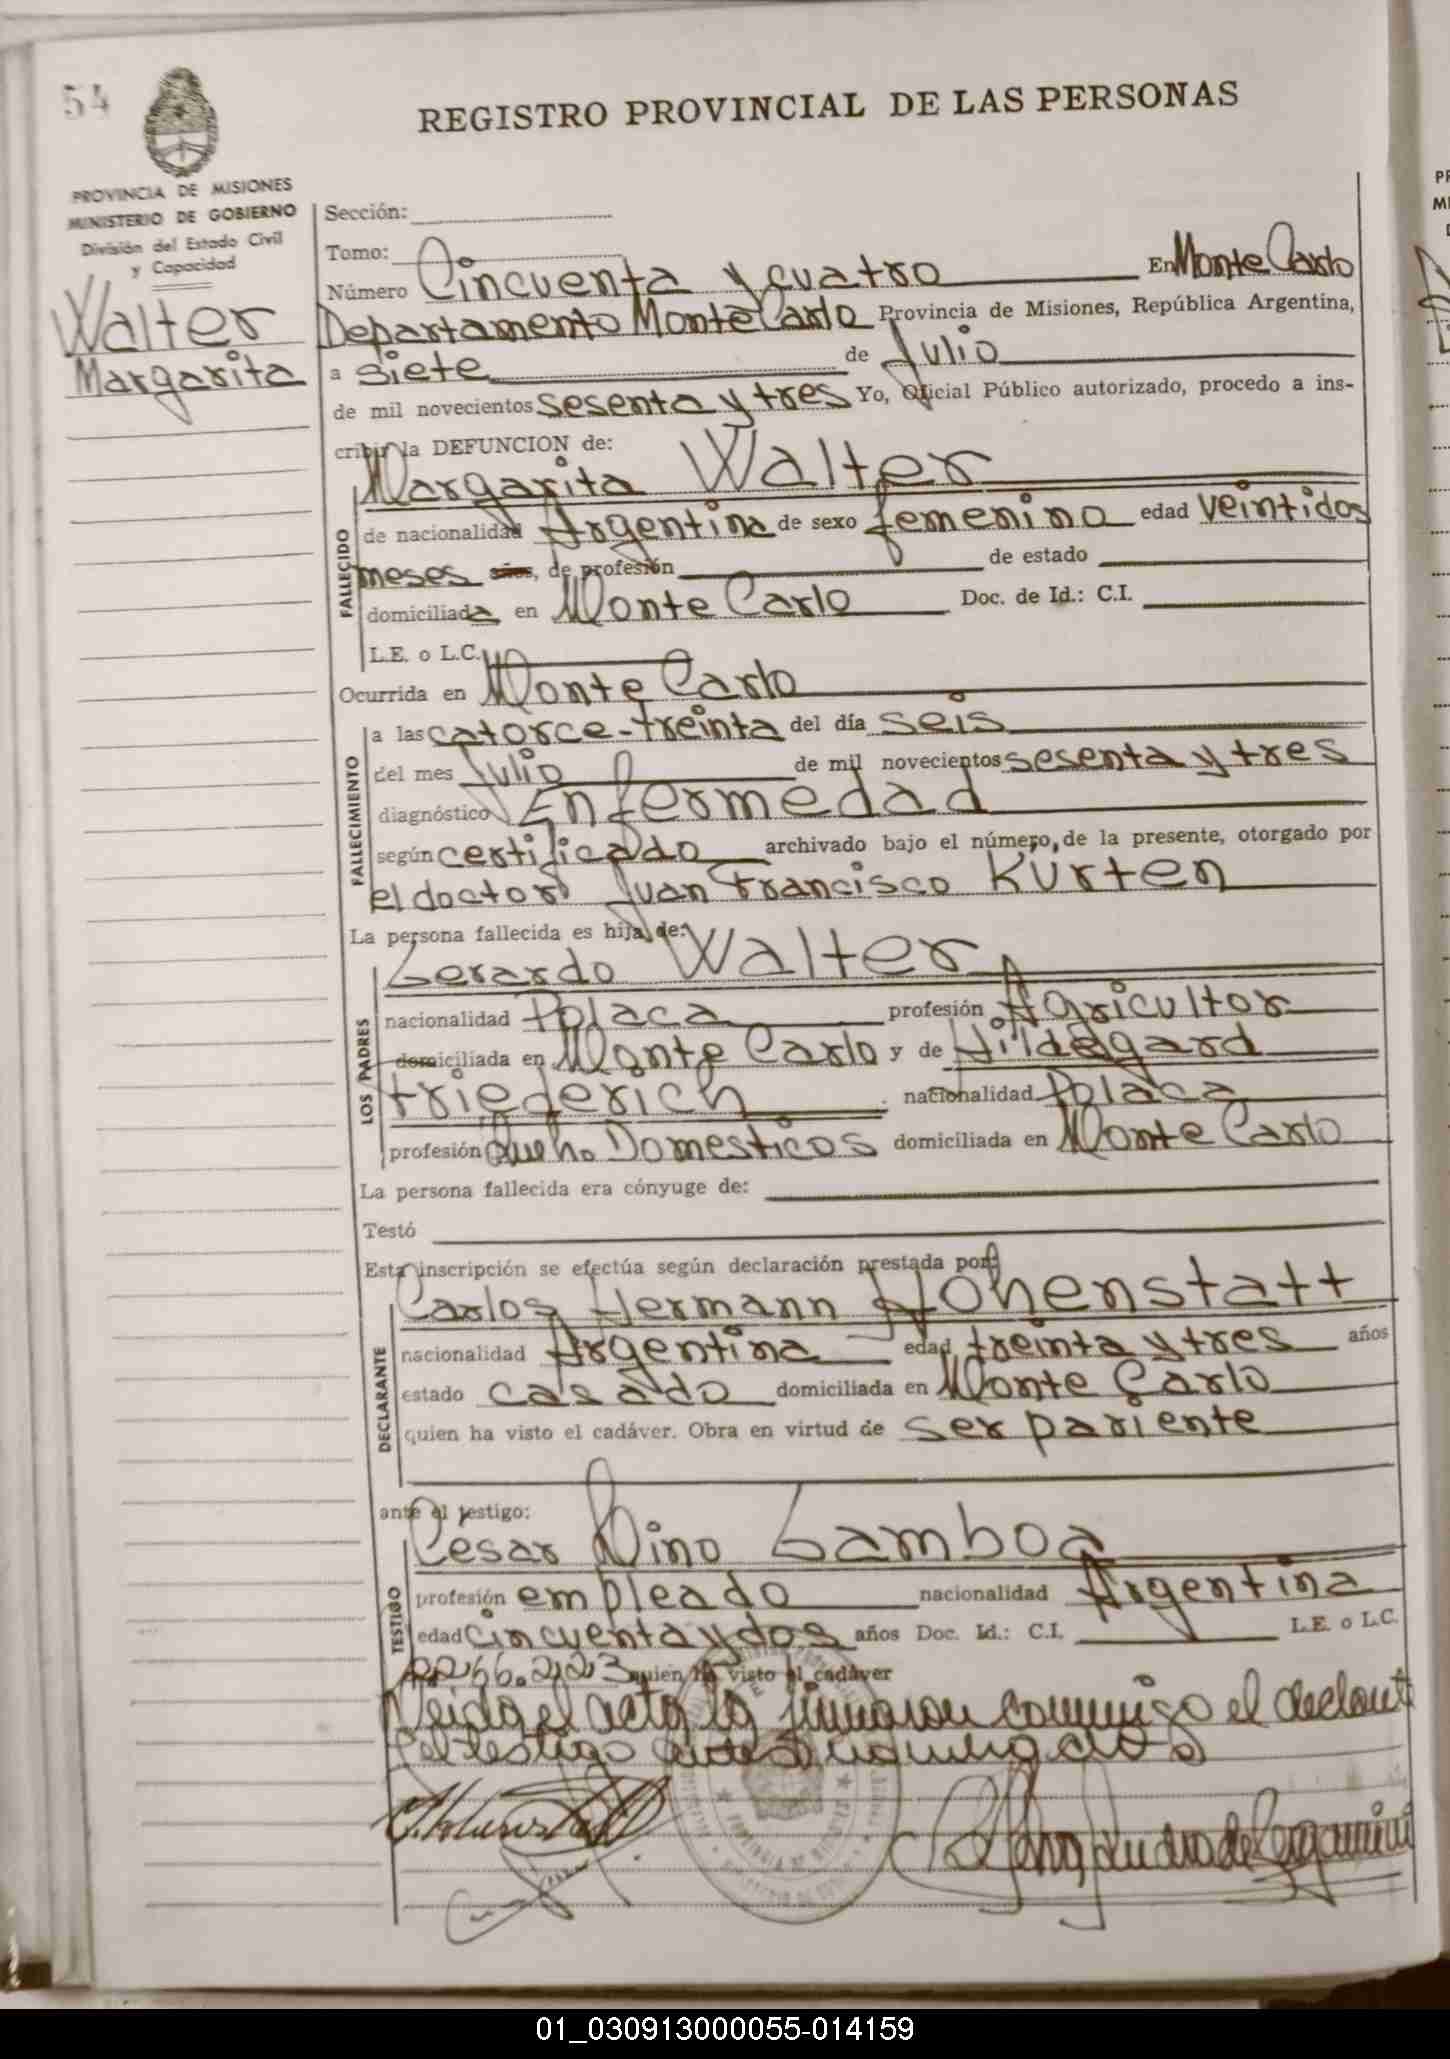 54
REGISTRO PROVINCIAL DE LAS PERSONAS
PROVINCIA DE MISIONES
MINISTERIO DE GOBIERNO
División del Estado Civil
y Capacidad
Walter
Margarita
Sección:
Tomo:
Número Cincuenta y cuatro En Monte Carlo
Departamento Monte Carlo Provincia de Misiones, República Argentina,
a siete de Julio
de mil novecientos sesenta y tres Yo, Oficial Público autorizado, procedo a ins-
cribir la DEFUNCION de:
Margarita Walter
FALLECIDO
de nacionalidad Argentina de sexo femenino edad veintidos
meses años, de profesión de estado
domiciliada en Monte Carlo Doc. de Id.: C.I.
L.E. o L.C.
Ocurrida en Monte Carlo
FALLECIMIENTO
a las catorce-treinta del día seis
del mes Julio de mil novecientos sesenta y tres
diagnóstico Enfermedad
según certificado archivado bajo el número, de la presente, otorgado por
el doctor Juan Francisco Kurten
La persona fallecida es hija de:
LOS PADRES
Gerardo Walter
nacionalidad Polaca profesión Agricultor
domiciliada en Monte Carlo y de Hildegard
Friederich nacionalidad Polaca
profesión Queh. Domesticos domiciliada en Monte Carlo
La persona fallecida era cónyuge de:
Testó
Esta inscripción se efectúa según declaración prestada por:
DECLARANTE
Carlos Hermann Hohenstatt
nacionalidad Argentina edad treinta y tres años
estado casado domiciliada en Monte Carlo
quien ha visto el cadáver. Obra en virtud de ser pariente
ante el testigo:
TESTIGO
César Nino Gamboa
profesión empleado nacionalidad Argentina
edad cincuenta y dos años Doc. Id.: C.I. L.E. o L.C.
quien ha visto el cadáver
Leida el acta la firmaron conmigo el declarante
y el testigo
PR
MI
01_030913000055-014159